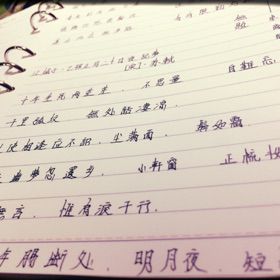 江城子·乙卯正月二十日夜记梦
[宋]·苏轼
十年生死两茫茫. 不思量. 自难忘
千里孤坟. 无处话凄凉.
使相逢应不识. 尘满面. 鬓如霜
幽梦忽还乡. 小轩窗. 正梳
无言. 惟有泪千行.
年肠断处. 明月夜. 短